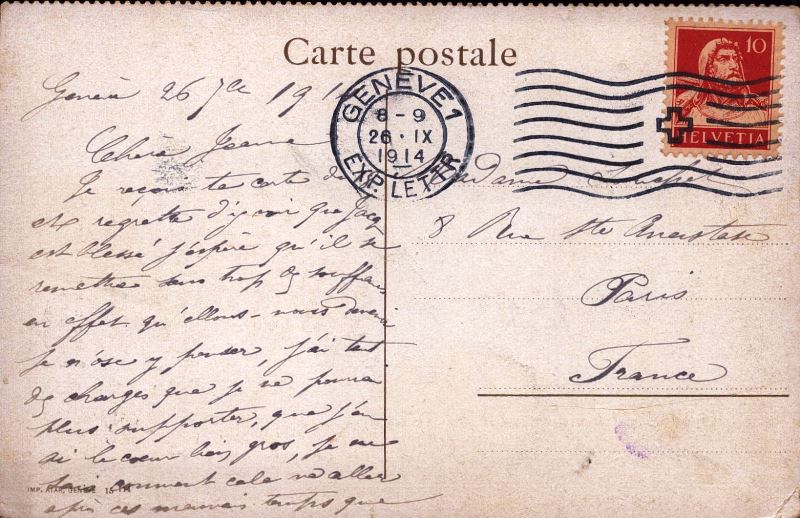 Carte postale
10
HELVETIA
GENÈVE 1
8-9
26·IX
1914
EXP. LETTR.
Genève 26 7re 191
Chère Jeanne
Je reçois ta carte de
et regrette d'y voir que Jacq
est blessé j'espère qu'il se
remettra sans trop de souffran
en effet qu'allons-nous devenir
je n'ose y penser, j'ai tant
de charges que je ne pourrai
plus supporter, que j'en
ai le coeur bien gros, je ne
sais comment cela va aller
après ces mauvais temps que
Madame
8 Rue Ste Anastase
Paris
France
IMP. ATAR, GENÈVE